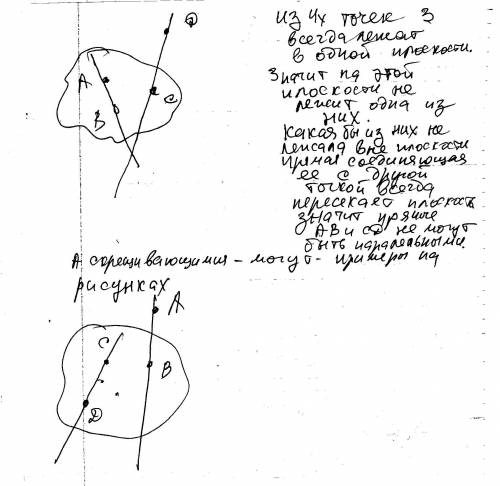 D
из 4х точек 3
всегда лежат
в одной плоскости.
A
C
B
Значит на этой
плоскости не
лежит одна из
них.
Какая бы из них не
лежала вне плоскости
прямая соединяющая
ее с другой
точкой всегда
пересекает плоскость
значит прямые
AB и CD не могут
быть параллельными.
А скрещивающимися - могут - примеры на
рисунках
A
C
B
D